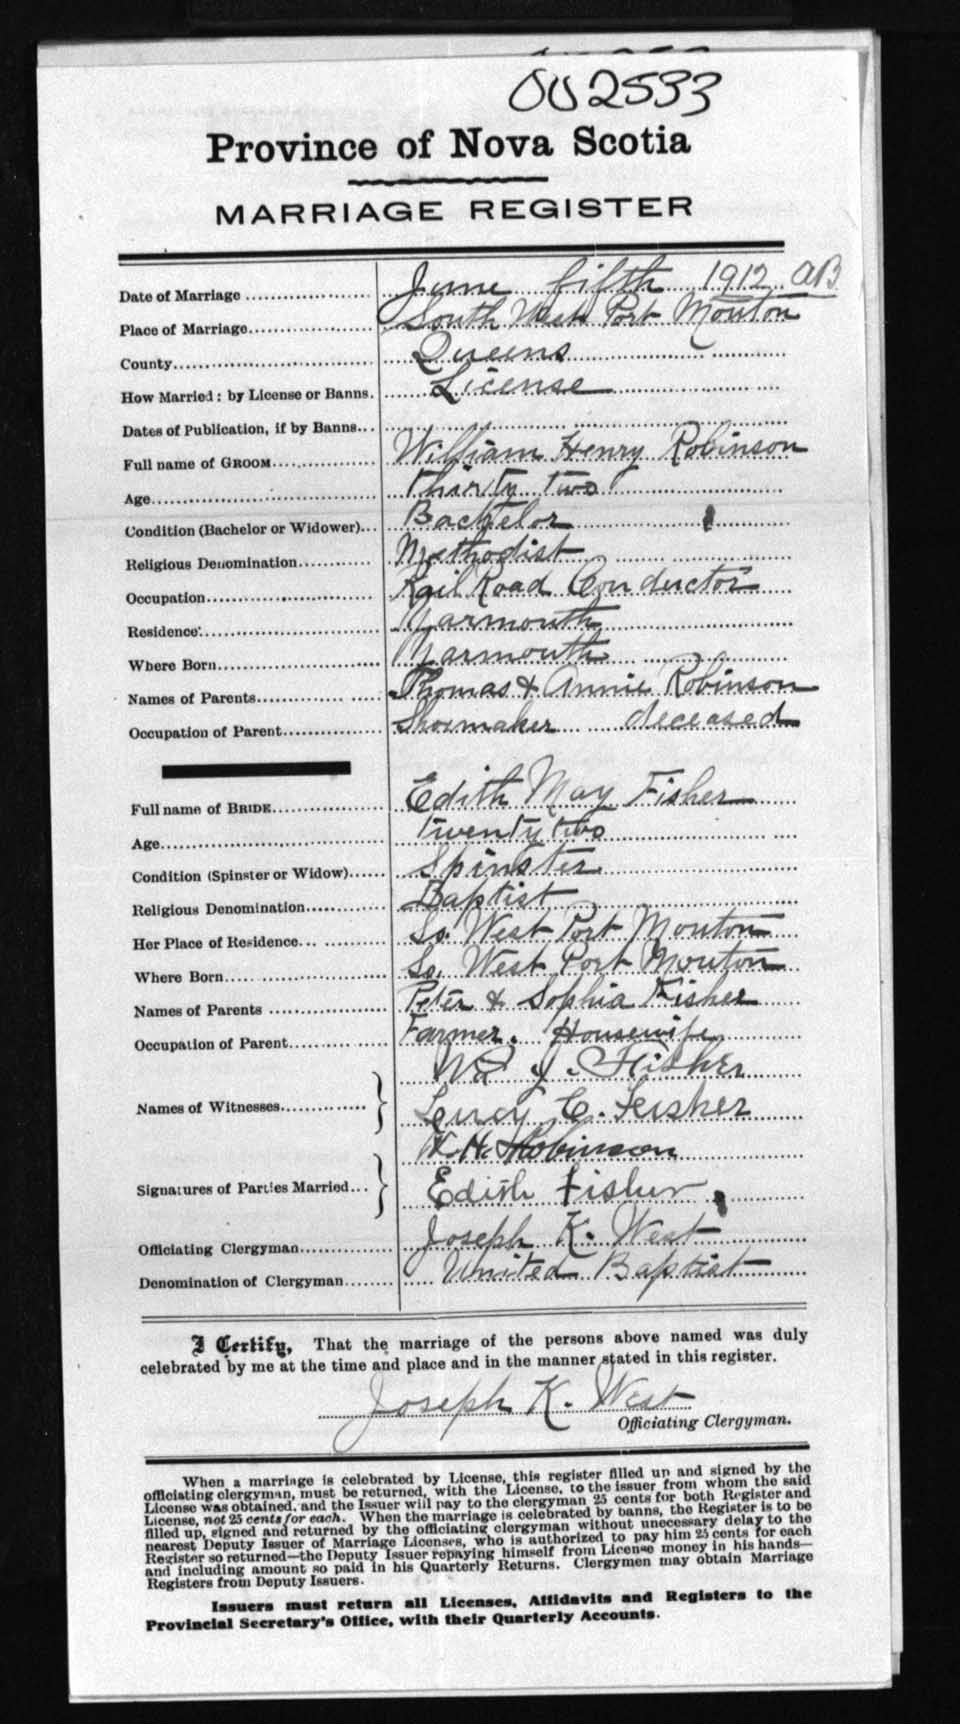 002533
Province of Nova Scotia
MARRIAGE REGISTER
Date of Marriage June fifth 1912 AB
Place of Marriage South West Port Mouton
County Queens
How Married: by License or Banns. License
Dates of Publication, if by Banns
Full name of GROOM William Henry Robinson
Age thirty two
Condition (Bachelor or Widower) Bachelor
Religious Denomination Methodist
Occupation Rail Road Conductor
Residence Yarmouth
Where Born Yarmouth
Names of Parents Thomas & Annie Robinson
Occupation of Parent Shoemaker deceased
Full name of BRIDE Edith May Fisher
Age twenty two
Condition (Spinster or Widow) Spinster
Religious Denomination Baptist
Her Place of Residence So West Port Mouton
Where Born So. West Port Mouton
Names of Parents Peter & Sophia Fisher
Occupation of Parent Farmer. Housewife
Names of Witnesses Wd J. Fisher
Lucy C. Fisher
Signatures of Parties Married W. H. Robinson
Edith Fisher
Officiating Clergyman Joseph K. West
Denomination of Clergyman United Baptist
I Certify, That the marriage of the persons above named was duly
celebrated by me at the time and place and in the manner stated in this register.
Joseph K. West
Officiating Clergyman.
When a marriage is celebrated by License, this register filled up and signed by the
officiating clergyman, must be returned, with the License, to the issuer from whom the said
License was obtained, and the Issuer will pay to the clergyman 25 cents for both Register and
License, not 25 cents for each. When the marriage is celebrated by banns, the Register is to be
filled up, signed and returned by the officiating clergyman without unnecessary delay to the
nearest Deputy Issuer of Marriage Licenses, who is authorized to pay him 25 cents for each
Register so returned—the Deputy Issuer repaying himself from License money in his hands—
and including amount so paid in his Quarterly Returns. Clergymen may obtain Marriage
Registers from Deputy Issuers.
Issuers must return all Licenses, Affidavits and Registers to the
Provincial Secretary's Office, with their Quarterly Accounts.